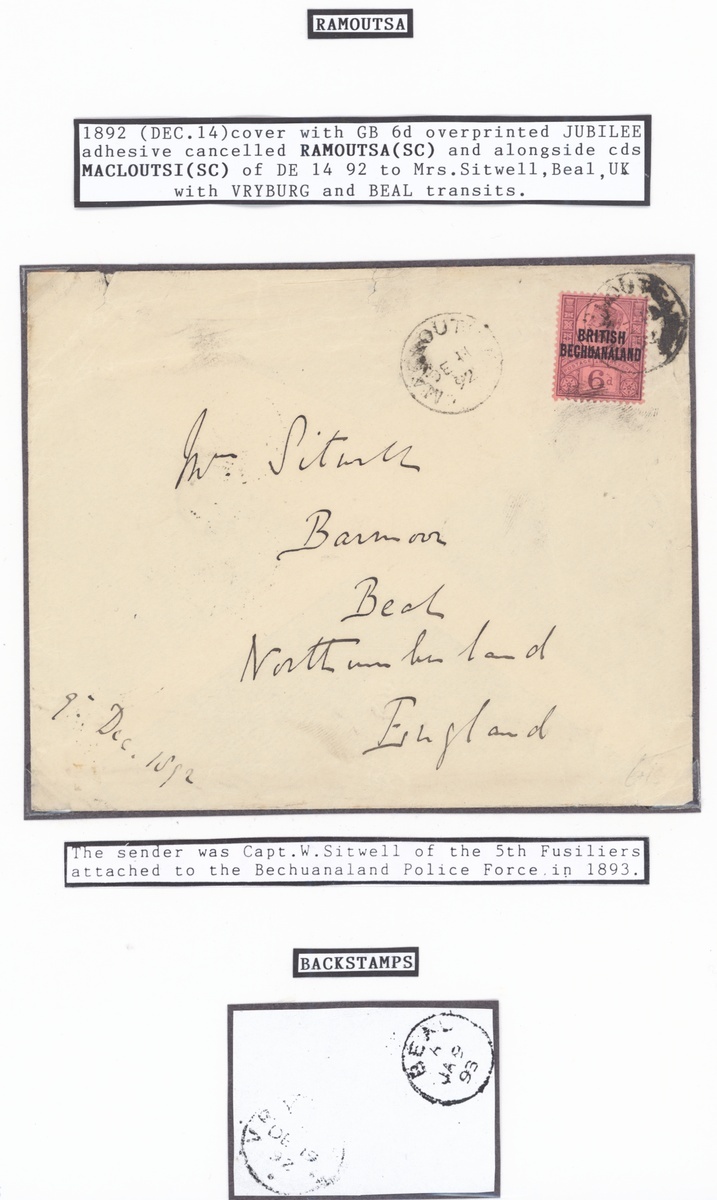 RAMOUTSA
1892 (DEC.14)cover with GB 6d overprinted JUBILEE
adhesive cancelled RAMOUTSA(SC) and alongside cds
MACLOUTSI(SC) of DE 14 92 to Mrs.Sitwell,Beal,UK
with VRYBURG and BEAL transits.
DE 14
92
BRITISH
BECHUANALAND
6d
Mrs Sitwell
Barmoor
Beal
Northumberland
England
9th Dec. 1892
The sender was Capt.W.Sitwell of the 5th Fusiliers
attached to the Bechuanaland Police Force.in 1893.
BACKSTAMPS
BEAL
A
JA 9
93
VR
DE 19
92